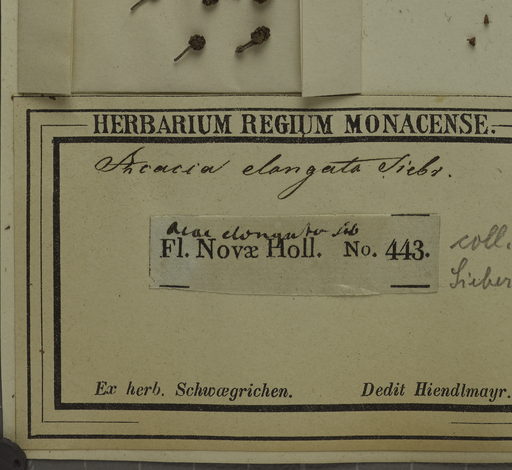 HERBARIUM REGIUM MONACENSE.
Acacia elongata Siebr.
Acac elongata sib
Fl. Novæ Holl. No. 443.
coll.
Sieber
Ex herb. Schwægrichen. Dedit Hiendlmayr.